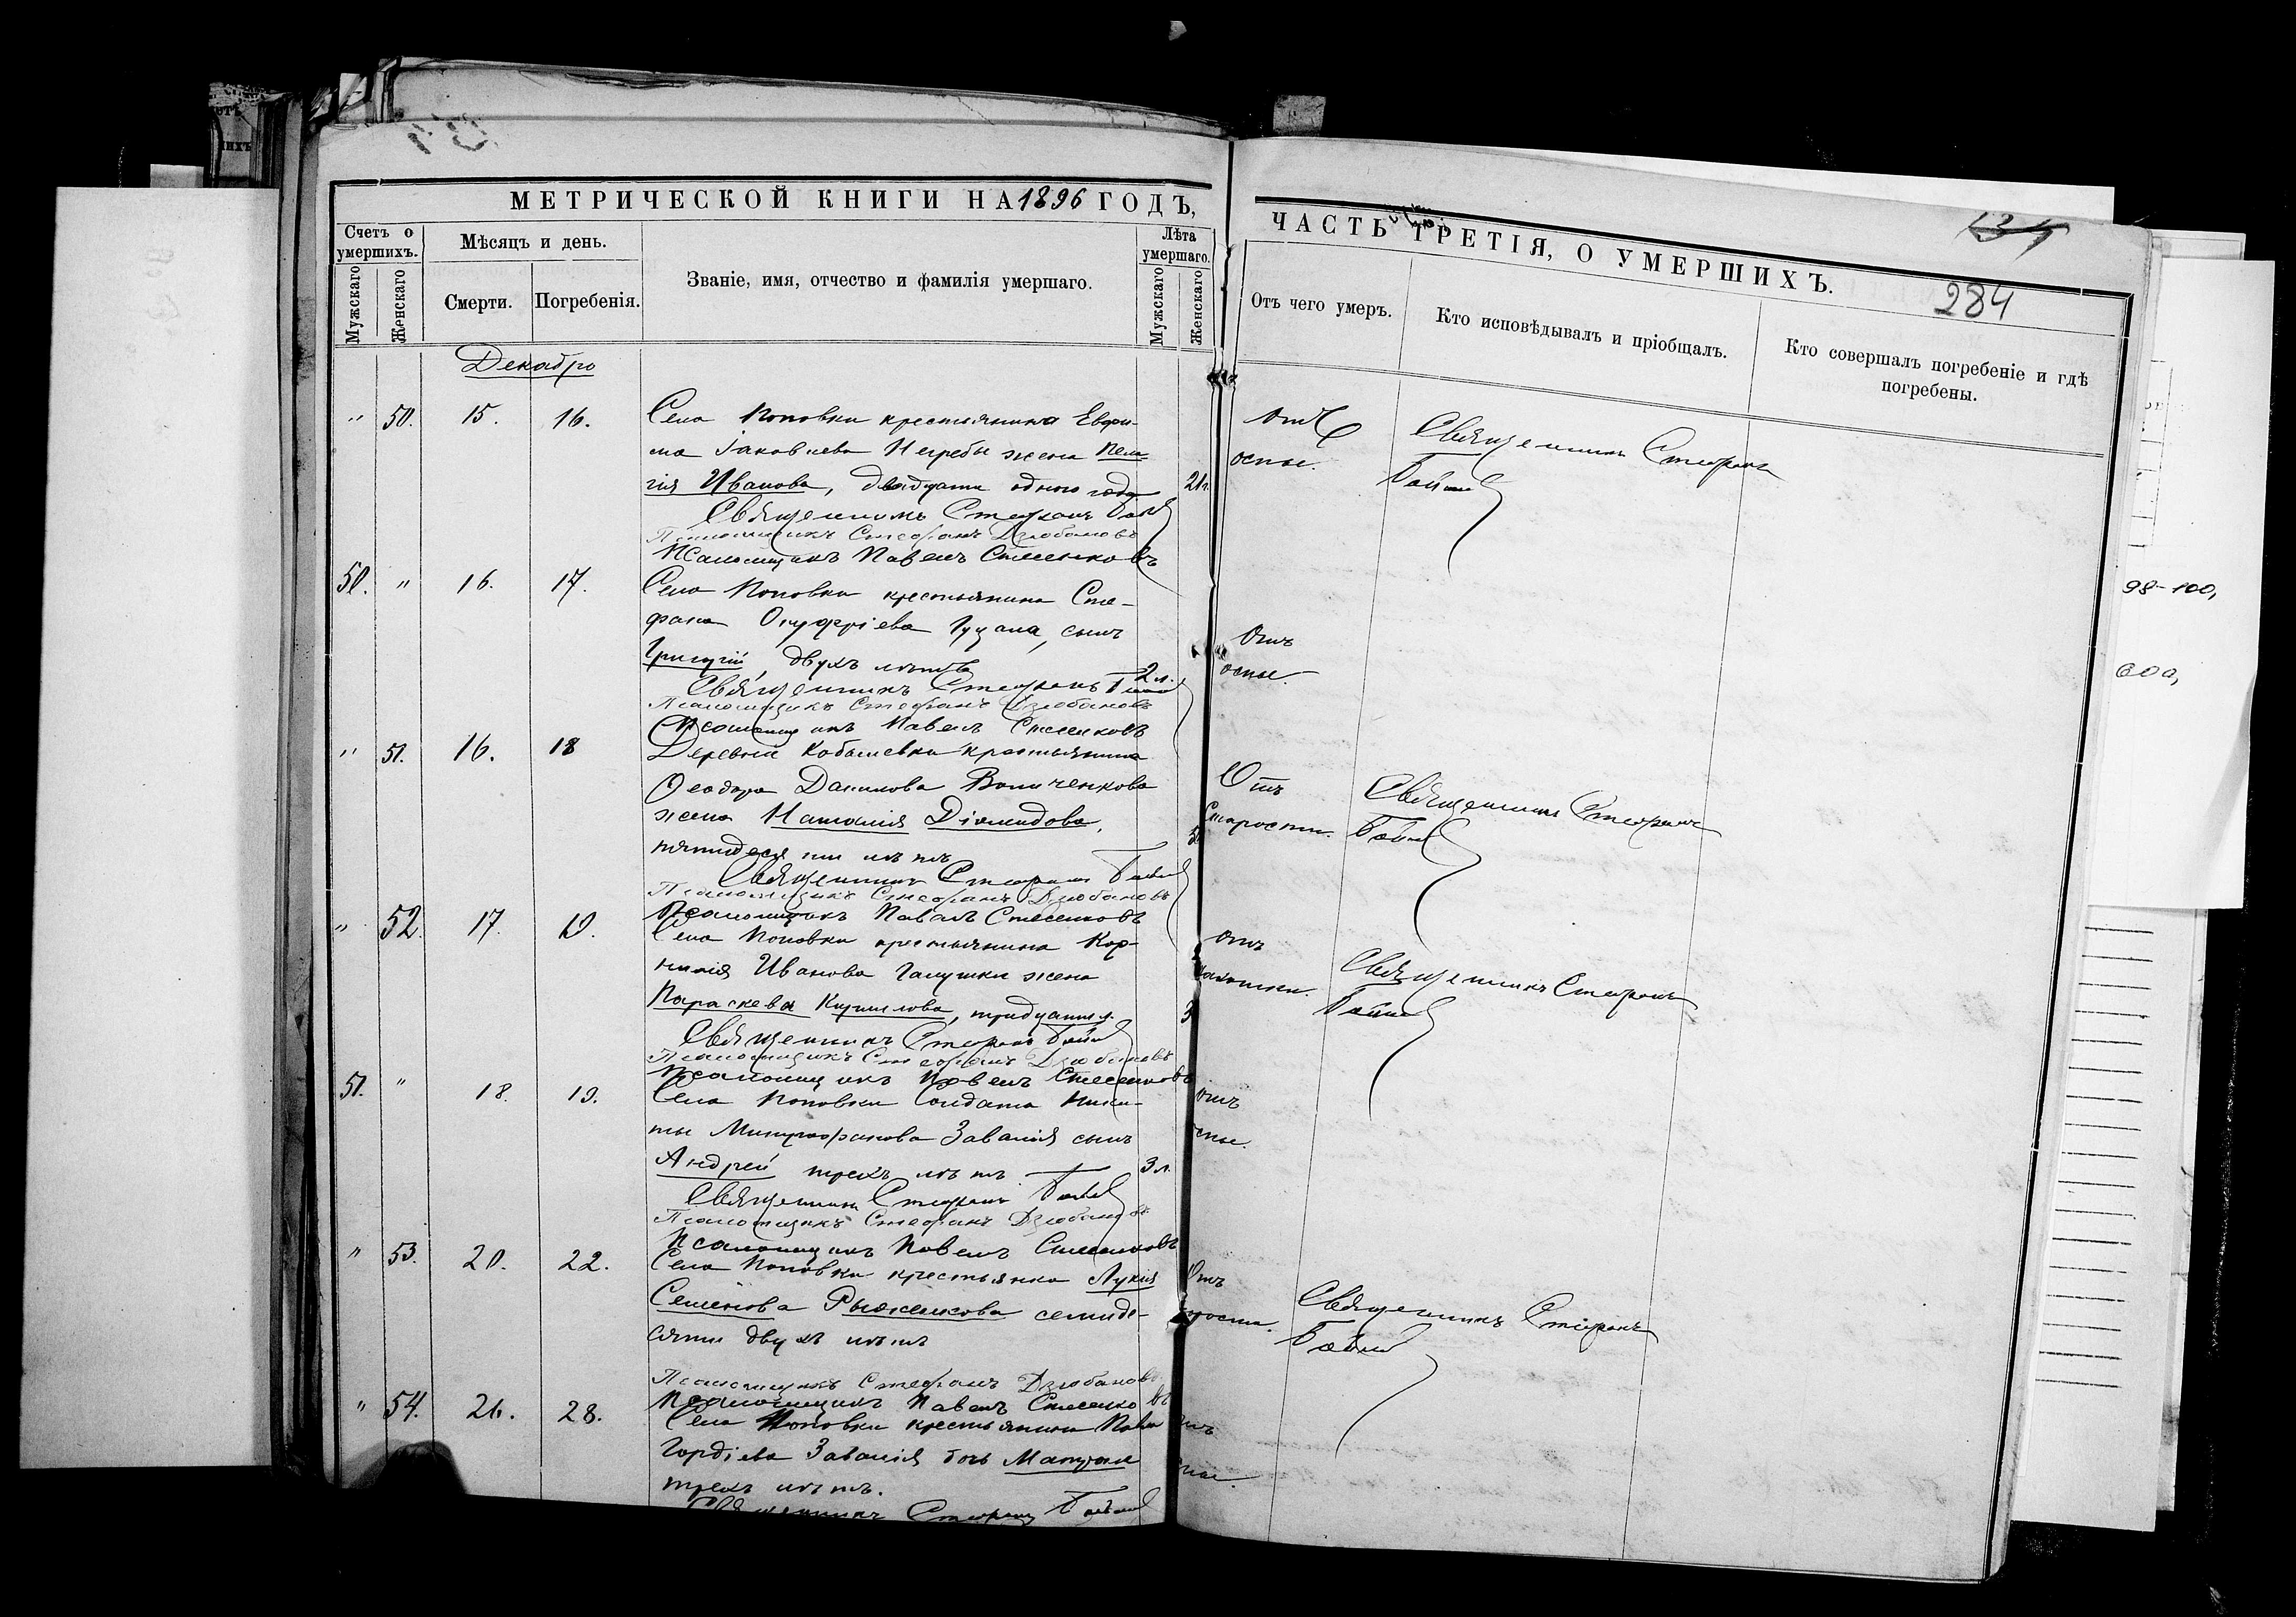 МЕТРИЧЕСКОЙ КНИГИ НА 1896 ГОДЪ,
Счетъ о умершихъ.
Мужскаго
Женскаго
Мѣсяцъ и день.
Смерти.
Погребенія.
Званіе, имя, отчество и фамилія умершаго.
Лѣта умершаго.
Мужскаго
Женскаго
ЧАСТЬ ТРЕТІЯ, О УМЕРШИХЪ.
284
Отъ чего умеръ.
Кто исповѣдывалъ и пріобщалъ.
Кто совершалъ погребеніе и гдѣ
погребены.
Декабрь
" 50. 15. 16. Села Поповки крестьянина Евфи-
ма Іаковлева Негребы жена Пела-
гія Иванова, двадцати одного года 21 г.
Отъ
оспы.
Священникъ Стефанъ
Священникъ Стефанъ
Псаломщикъ Стефанъ Дзюбановъ
Псаломщикъ Павелъ Стесенковъ
50. " 16. 17. Села Поповки крестьянина Сте-
фана Онуфріева Гуцала, сынъ
Григорій, двухъ лѣтъ 2 л.
Отъ
оспы.
Священникъ Стефанъ
Псаломщикъ Стефанъ Дзюбановъ
Псаломщикъ Павелъ Стесенковъ
" 51. 16. 18 Деревни Кобылевки крестьянина
Ѳеодора Данилова Величенкова
жена Наталія Діомидова,
пятидесяти лѣтъ
Отъ
старости.
Священникъ Стефанъ
Священникъ Стефанъ
Псаломщикъ Стефанъ Дзюбановъ
Псаломщикъ Павелъ Стесенковъ
" 52. 17. 19. Села Поповки крестьянина Кор-
нилія Иванова Галушки жена
Параскева Кирилова, тридцати л.
Отъ
чахотки.
Священникъ Стефанъ
Священникъ Стефанъ
Псаломщикъ Стефанъ Дзюбановъ
Псаломщикъ Павелъ Стесенковъ
51. " 18. 19. Села Поповки Солдата Ники-
ты Митрофанова Завалія сынъ
Андрей трехъ лѣтъ 3 л.
Отъ
оспы.
Священникъ Стефанъ
Псаломщикъ Стефанъ Дзюбановъ
Псаломщикъ Павелъ Стесенковъ
" 53. 20. 22. Села Поповки крестьянка Лукія
Семенова Рыженкова семиде-
сяти двухъ лѣтъ
Отъ
Священникъ Стефанъ
Псаломщикъ Стефанъ Дзюбановъ
Псаломщикъ Павелъ Стесенковъ
" 54. 26. 28. Села Поповки крестьянина Павла
Гордіева Завалія дочь Матрона
трехъ лѣтъ.
Священникъ Стефанъ
98-100,